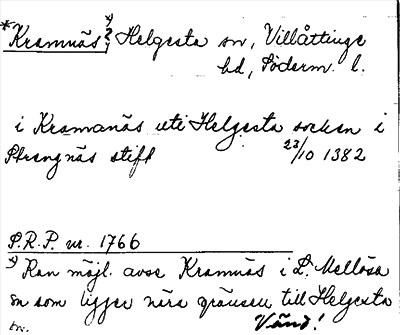 *Kramnäs *) Helgesta sn, Villåttinge
hd, Söderm. l.
i Kramanäs uti Helgesta socken i
Strengnäs stift 23/10 1382
S.R.P. nr. 1766
*) Kan möjl. avse Kramnäs i L. Mellösa
sn som ligger nära gränsen till Helgesta
Vänd!